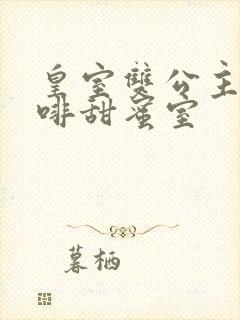 皇室雙公主
啡甜蜜室
暮栖